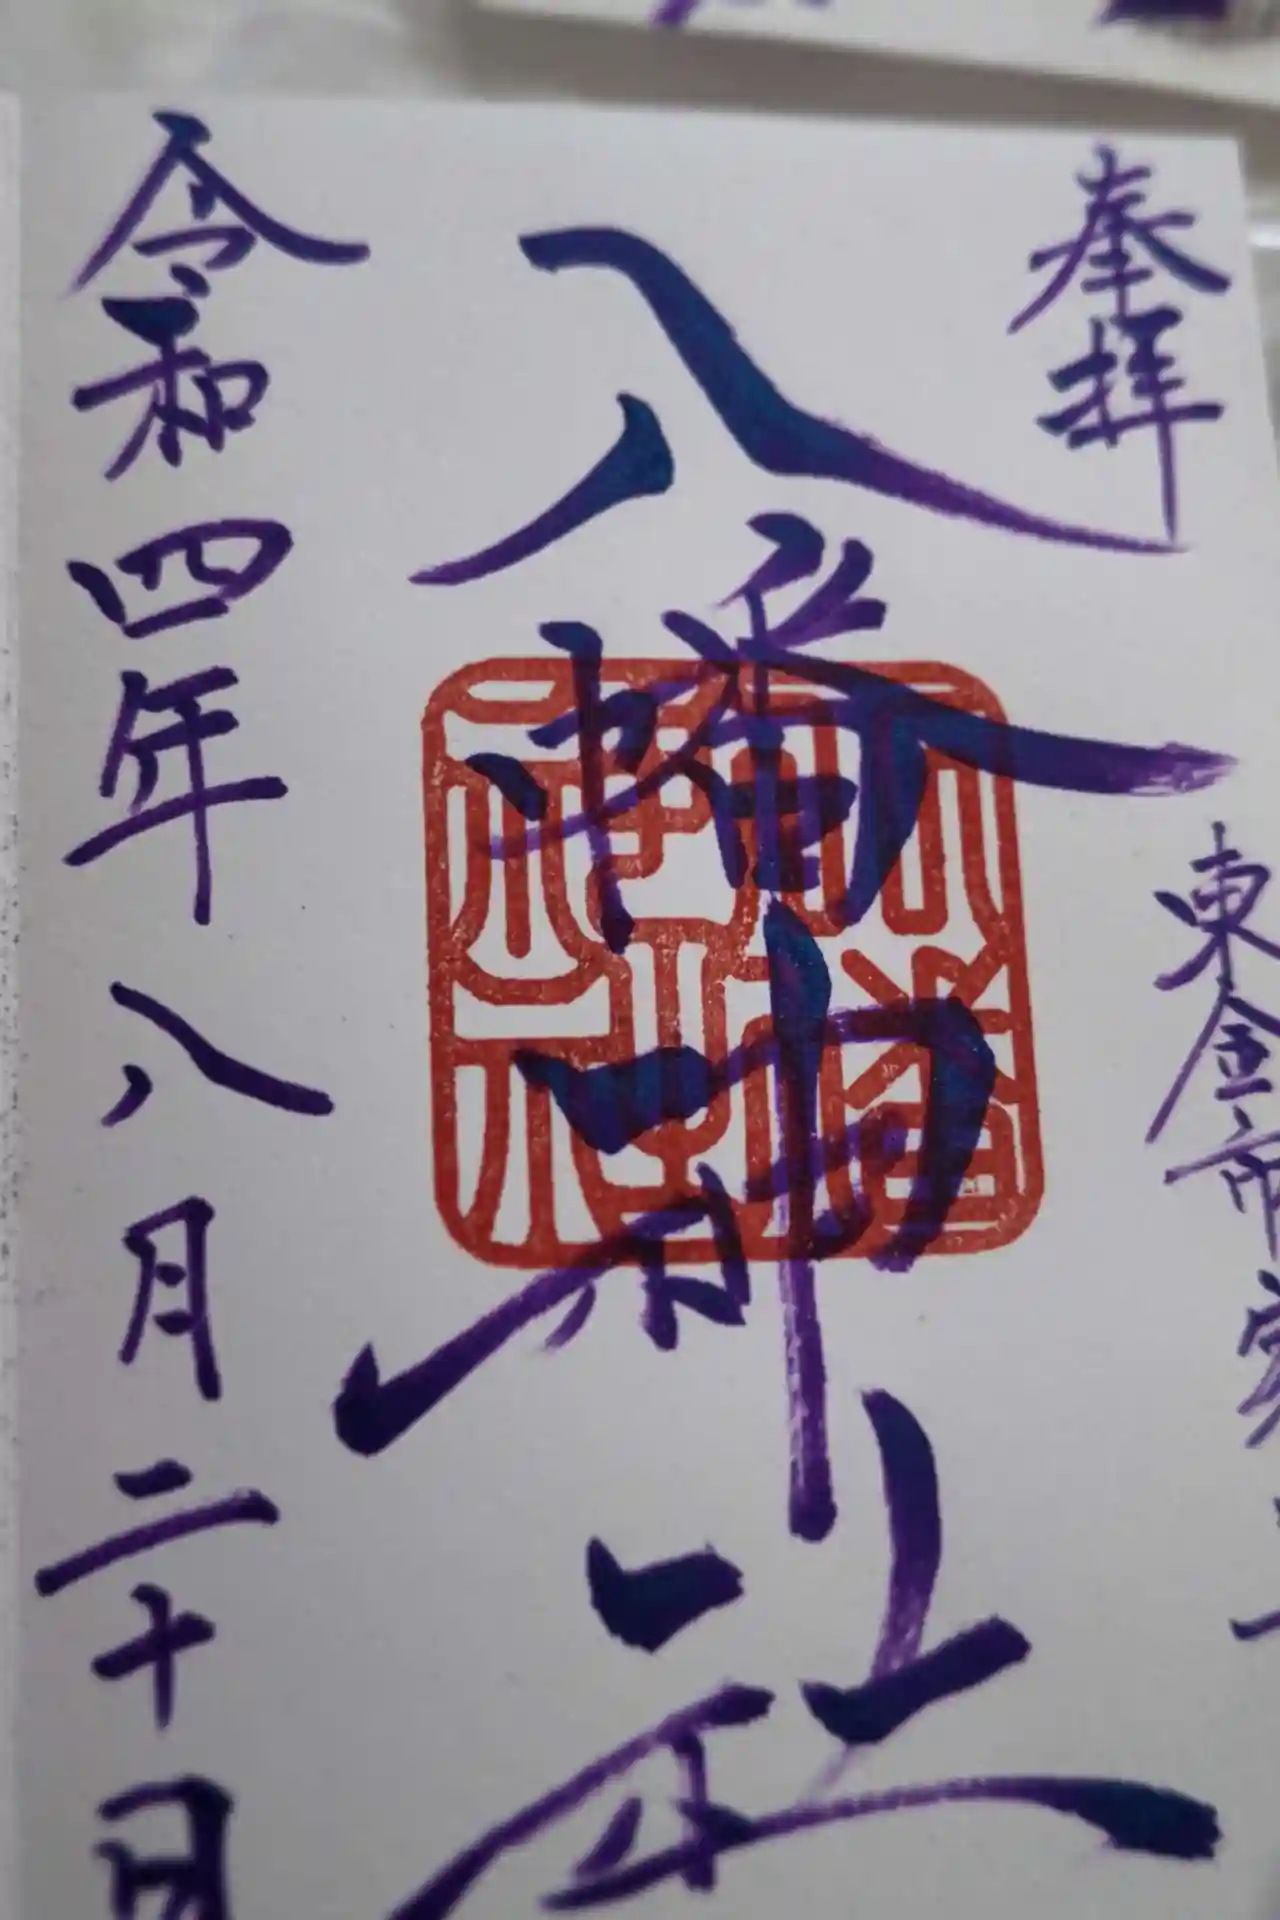 奉拝
東金市
八幡神社
八幡神社
令和四年八月二十日